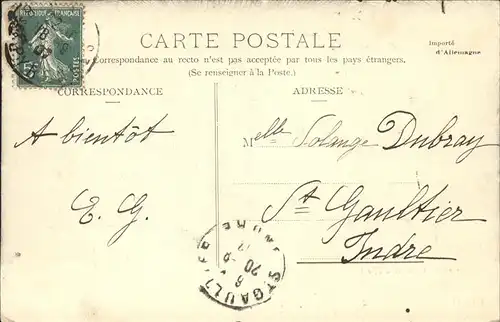 REPUBLIQUE FRANÇAISE
5
POSTES
CARTE POSTALE
Importé
d'Allemagne
Correspondance au recto n'est pas acceptée par tous les pays étrangers.
(Se renseigner à la Poste.)
CORRESPONDANCE
ADRESSE
A bientôt
Melle Solange Dubray
E. G.
St Gaultier
Indre
ST GAULTIER
INDRE